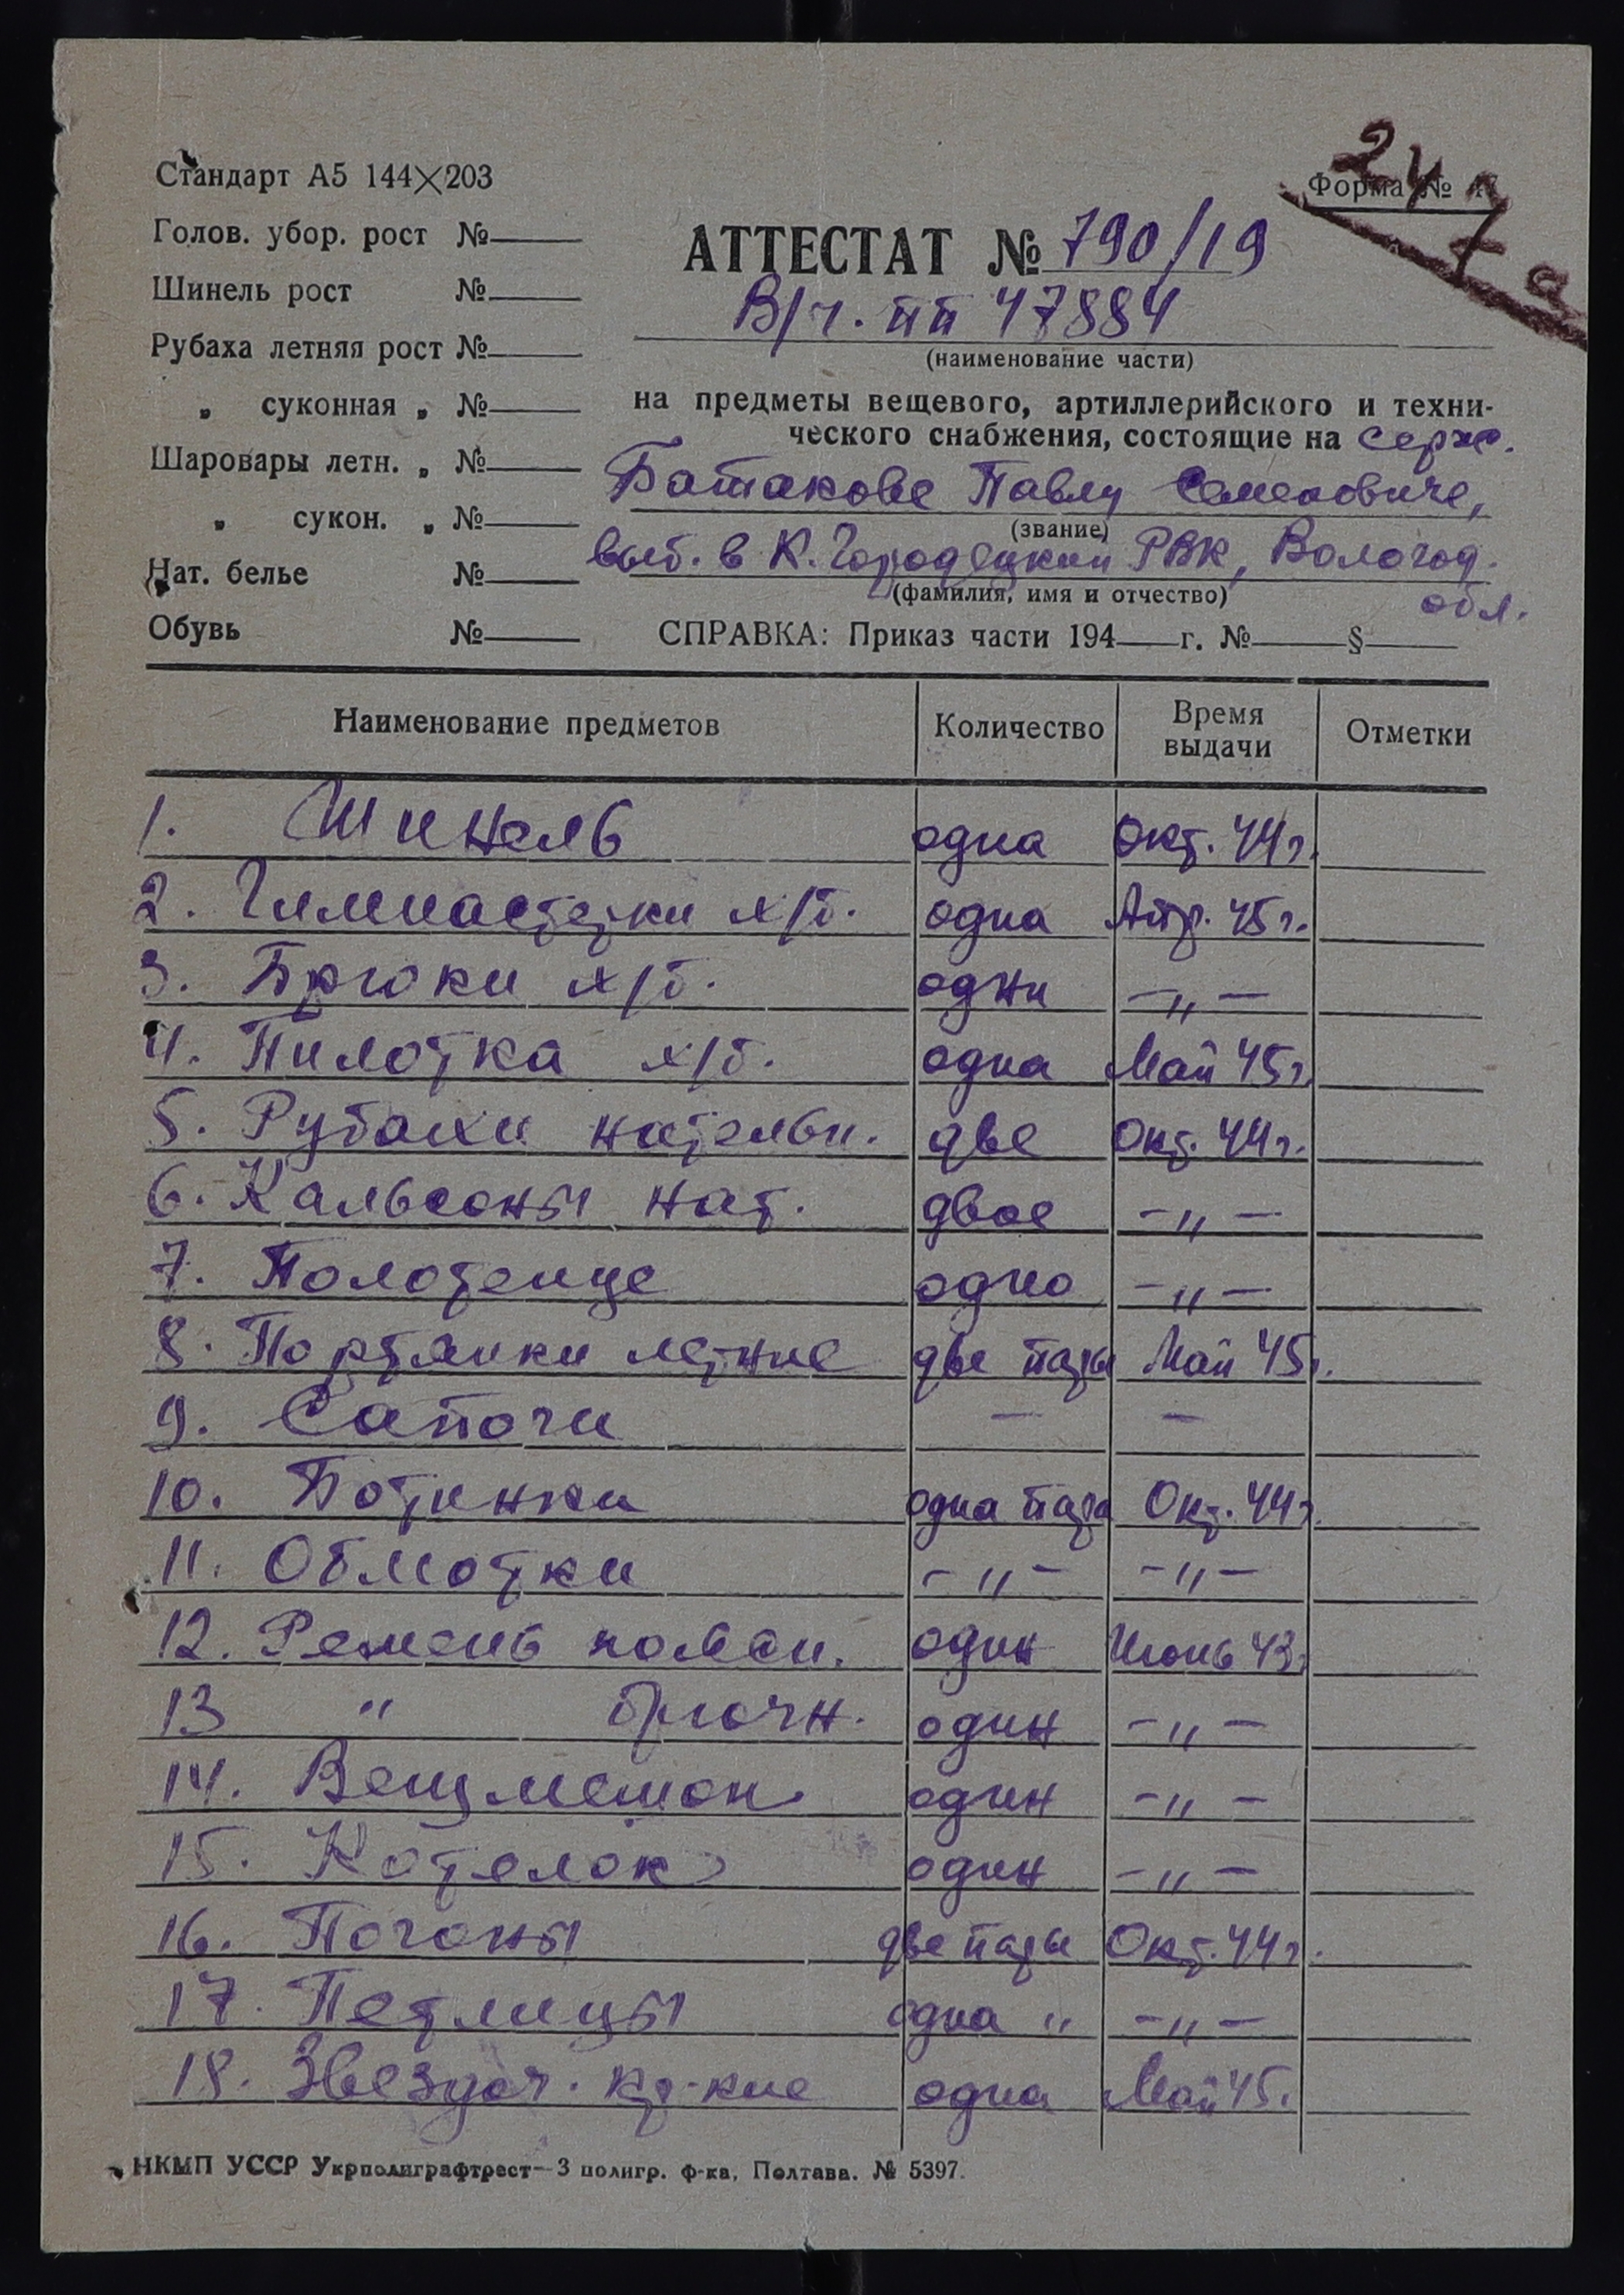 Стандарт А5 144×203
Форма №
24 л
Голов. убор. рост №
Шинель рост №
Рубаха летняя рост №
„ суконная „ №
Шаровары летн. „ №
„ сукон. „ №
Нат. белье №
Обувь №
АТТЕСТАТ № 790/19
В/ч. пп 47884
(наименование части)
на предметы вещевого, артиллерийского и техни-
ческого снабжения, состоящие на серж.
Батакове Павлу Семеновиче,
(звание)
выб. в К. Городецкий РВК, Вологод.
обл.
(фамилия, имя и отчество)
СПРАВКА: Приказ части 194 г. № §
Наименование предметов Количество Время выдачи Отметки
1. Шинель одна Окт. 44 г.
2. Гимнастерки х/б. одна Апр. 45 г.
3. Брюки х/б. одни –„–
4. Пилотка х/б. одна Май 45 г.
5. Рубахи нательн. две Окт. 44 г.
6. Кальсоны нат. двое –„–
7. Полотенце одно –„–
8. Портянки летние две пары Май 45 г.
9. Сапоги – –
10. Ботинки одна пара Окт. 44 г.
11. Обмотки –„– –„–
12. Ремень поясн. один Июнь 43 г.
13 „ брючн. один –„–
14. Вещмешок один –„–
15. Котелок один –„–
16. Погоны две пары Окт. 44 г.
17. Петлицы одна „ –„–
18. Звездоч. кр-кие одна Май 45.
НКМП УССР Укрполиграфтрест—3 полигр. ф-ка, Полтава. № 5397.